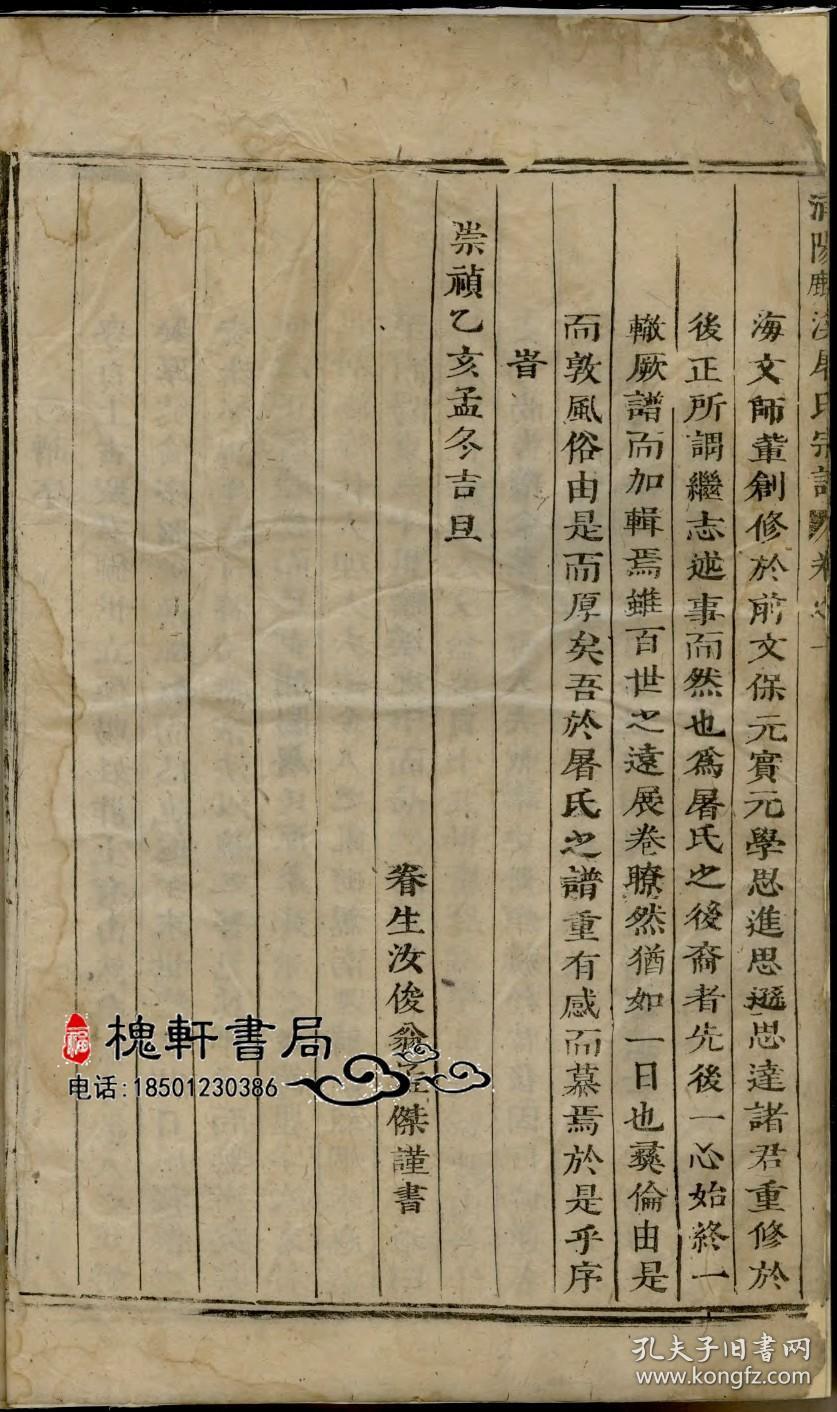 陽 溪屠氏宗譜 卷之一
海文師輩創修於前文保元實元學思進思遜思達諸君重修於
後正所謂繼志述事而然也為屠氏之後裔者先後一心始終一
轍厥譜而加輯焉雖百世之遠展卷瞭然猶如一日也彝倫由是
而敦風俗由是而厚矣吾於屠氏之譜重有感而慕焉於是乎序
旹
崇禎乙亥孟冬吉旦
眷生汝俊翁孟傑謹書
福
槐軒書局
电话:18501230386
孔夫子旧书网
www.kongfz.com